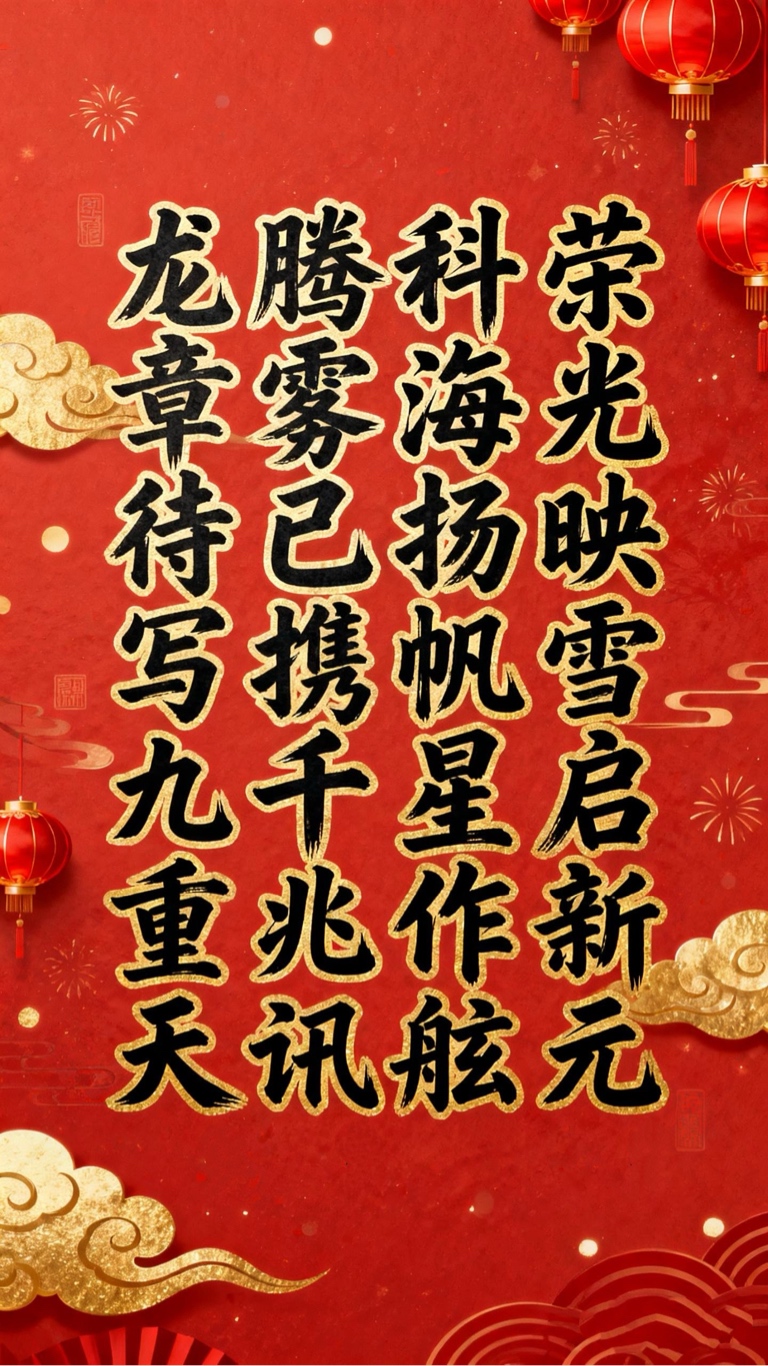 荣光映雪启新元
科海扬帆星作舷
腾雾已携千兆讯
龙章待写九重天